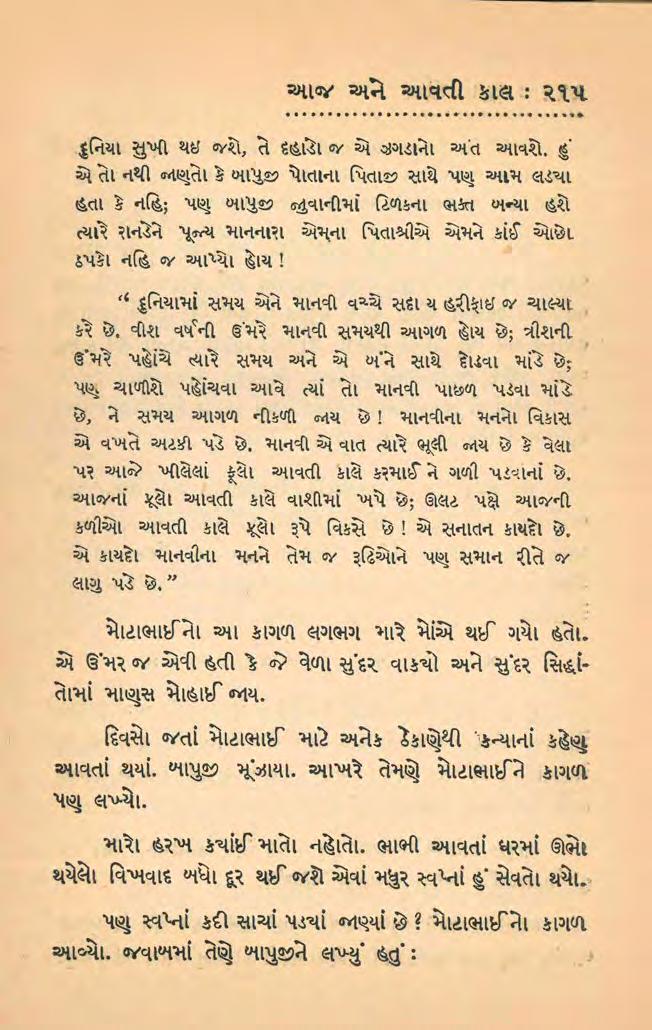 આજ અને આવતી કાલ : ૨૧૫
દુનિયા સુખી થઇ જશે, તે દહાડો જ એ ઝગડાનો અંત આવશે. હું
એ તો નથી જાણતો કે બાપુજી પોતાના પિતાજી સાથે પણ આમ લડયા
હતા કે નહિ; પણ બાપુજી જુવાનીમાં ટિળકના ભક્ત બન્યા હશે
ત્યારે રાનડેને પૂજ્ય માનનારા એમના પિતાશ્રીએ એમને કાંઈ ઓછો
ઠપકો નહિ જ આપ્યો હોય !
“ દુનિયામાં સમય એને માનવી વચ્ચે સદા ય હરીફાઇ જ ચાલ્યા
કરે છે. વીશ વર્ષની ઉંમરે માનવી સમયથી આગળ હોય છે; ત્રીશની
ઉંમરે પહોંચે ત્યારે સમય અને એ બંને સાથે દોડવા માંડે છે;
પણ ચાળીશે પહોંચવા આવે ત્યાં તો માનવી પાછળ પડવા માંડે
છે, ને સમય આગળ નીકળી જાય છે ! માનવીના મનનો વિકાસ
એ વખતે અટકી પડે છે. માનવી એ વાત ત્યારે ભૂલી જાય છે કે વેલા
પર આજે ખીલેલાં ફૂલો આવતી કાલે કરમાઈ ને ગળી પડવાનાં છે.
આજનાં ફૂલો આવતી કાલે વાશીમાં ખપે છે; ઊલટ પક્ષે આજની
કળીઓ આવતી કાલે ફૂલો રૂપે વિકસે છે ! એ સનાતન કાયદો છે.
એ કાયદો માનવીના મનને તેમ જ રૂઢિઓને પણ સમાન રીતે જ
લાગુ પડે છે.”
મોટાભાઈનો આ કાગળ લગભગ મારે મોંએ થઈ ગયો હતો.
એ ઉંમર જ એવી હતી કે જે વેળા સુંદર વાકયો અને સુંદર સિદ્ધાં-
તોમાં માણસ મોહાઈ જાય.
દિવસો જતાં મોટાભાઈ માટે અનેક ઠેકાણેથી કન્યાનાં કહેણ
આવતાં થયાં. બાપુજી મૂંઝાયા. આખરે તેમણે મોટાભાઈને કાગળ
પણ લખ્યો.
મારો હરખ કયાંઈ માતો નહોતો. ભાભી આવતાં ઘરમાં ઊભો
થયેલો વિખવાદ બધો દૂર થઈ જશે એવાં મધુર સ્વપ્નાં હું સેવતો થયો.
પણ સ્વપ્નાં કદી સાચાં પડયાં જાણ્યાં છે ? મોટાભાઈનો કાગળ
આવ્યો. જવાબમાં તેણે બાપુજીને લખ્યું હતું :